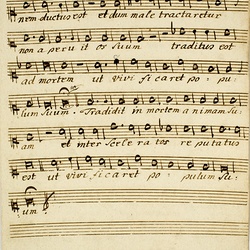 nem ductus est et dum male tractaretur
non a peru it os suum traditus est
ad mortem ut vivi ficaret po pu
lum suum. Tradidit in mortem animam su
am et inter scele ra tos re putatus
est ut vivi ficaret po pulum su
um